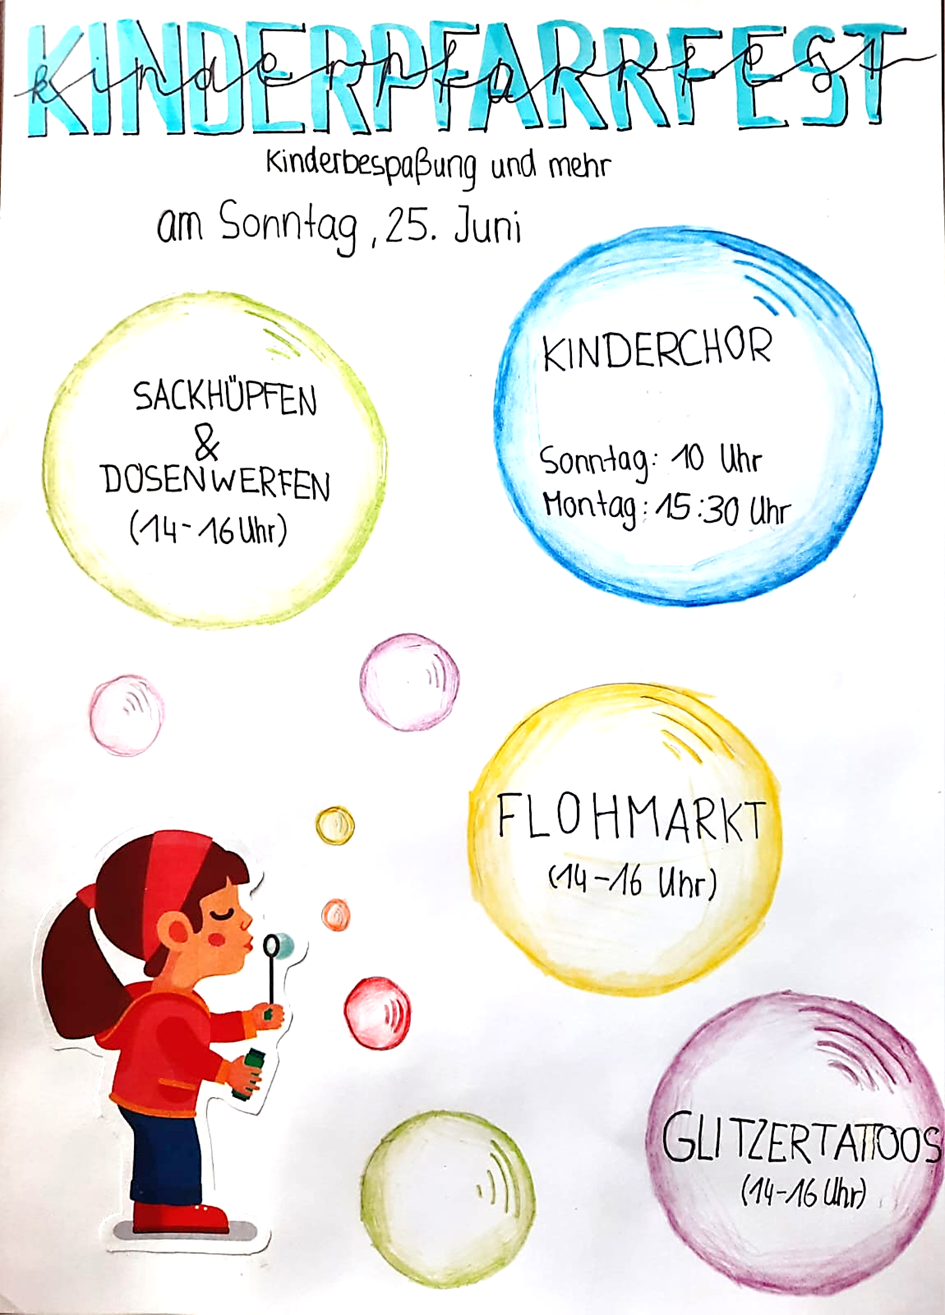 KINDERPFARRFEST
kinderpfarrfest
Kinderbespaßung und mehr
am Sonntag, 25. Juni
SACKHÜPFEN
&
DOSENWERFEN
(14-16 Uhr)
KINDERCHOR
Sonntag: 10 Uhr
Montag: 15:30 Uhr
FLOHMARKT
(14-16 Uhr)
GLITZERTATTOOS
(14-16 Uhr)